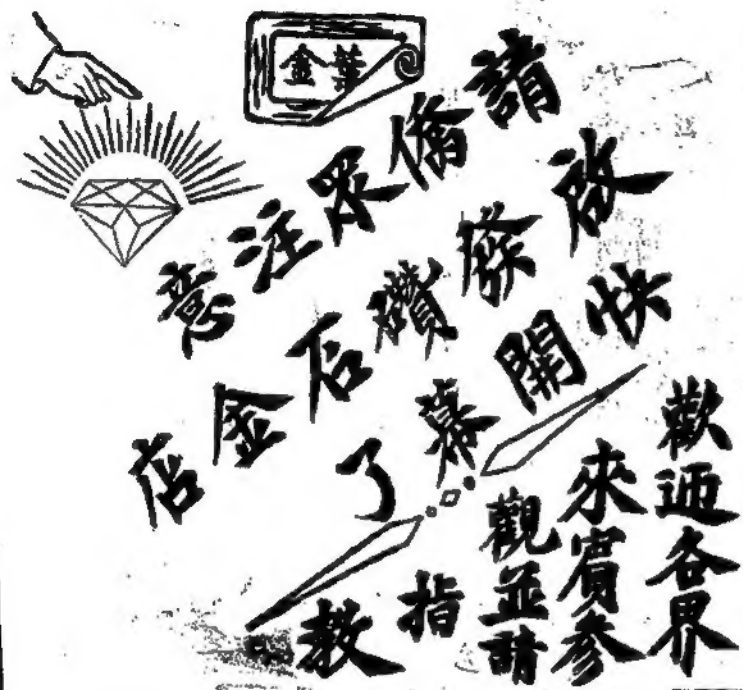 金葉
請僑眾注意
啟發鑽石金店
快開幕了
歡迎各界
來賓參
觀並請
指教